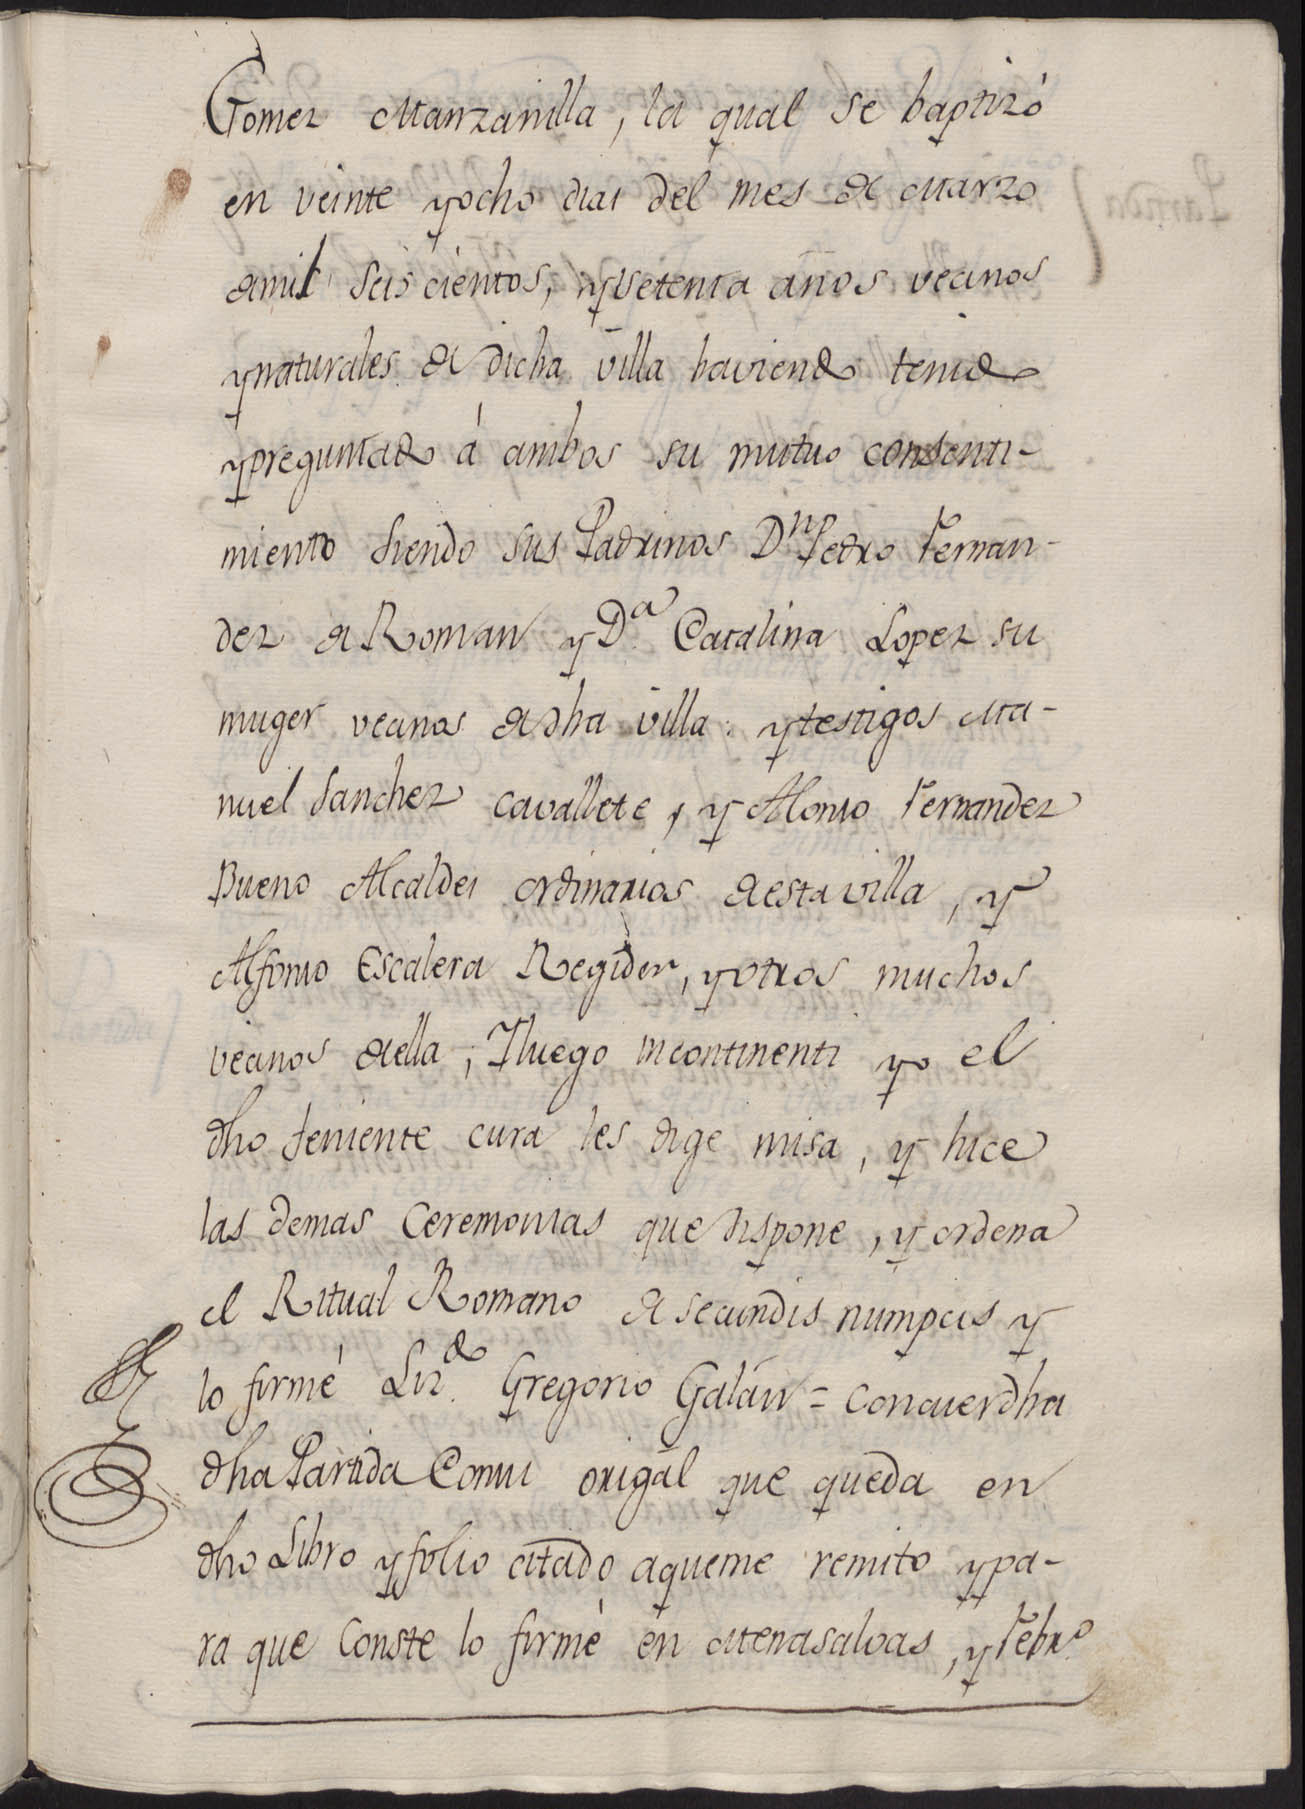 Gomez Manzanilla, la qual se baptizó
en veinte y ocho dias del mes de Marzo
de mil seis cientos, y setenta años vecinos
y naturales de dicha villa haviendo tenido
y preguntado á ambos su mutuo consenti-
miento siendo sus Padrinos Dn Pedro Fernan-
dez de Roman y Da. Catalina Lopez su
muger vecinos de dha villa: y testigos Ma-
nuel Sanchez Cavallete, y Alonso Fernandez
Bueno Alcaldes ordinarios de esta villa, y
Alfonso Escalera Regidor, y otros muchos
vecinos de ella; Y luego incontinenti yo el
dho teniente cura les dige misa, y hice
las demas Ceremonias que dispone, y ordena
el Ritual Romano de secundis numpcis y
lo firmé Lizdo. Gregorio Galán = Concuerdha
dha Partida Conui origâl que queda en
dho Libro y folio citado a que me remito y pa-
ra que Conste lo firmé en Menasalvas, y Febro.
Partida